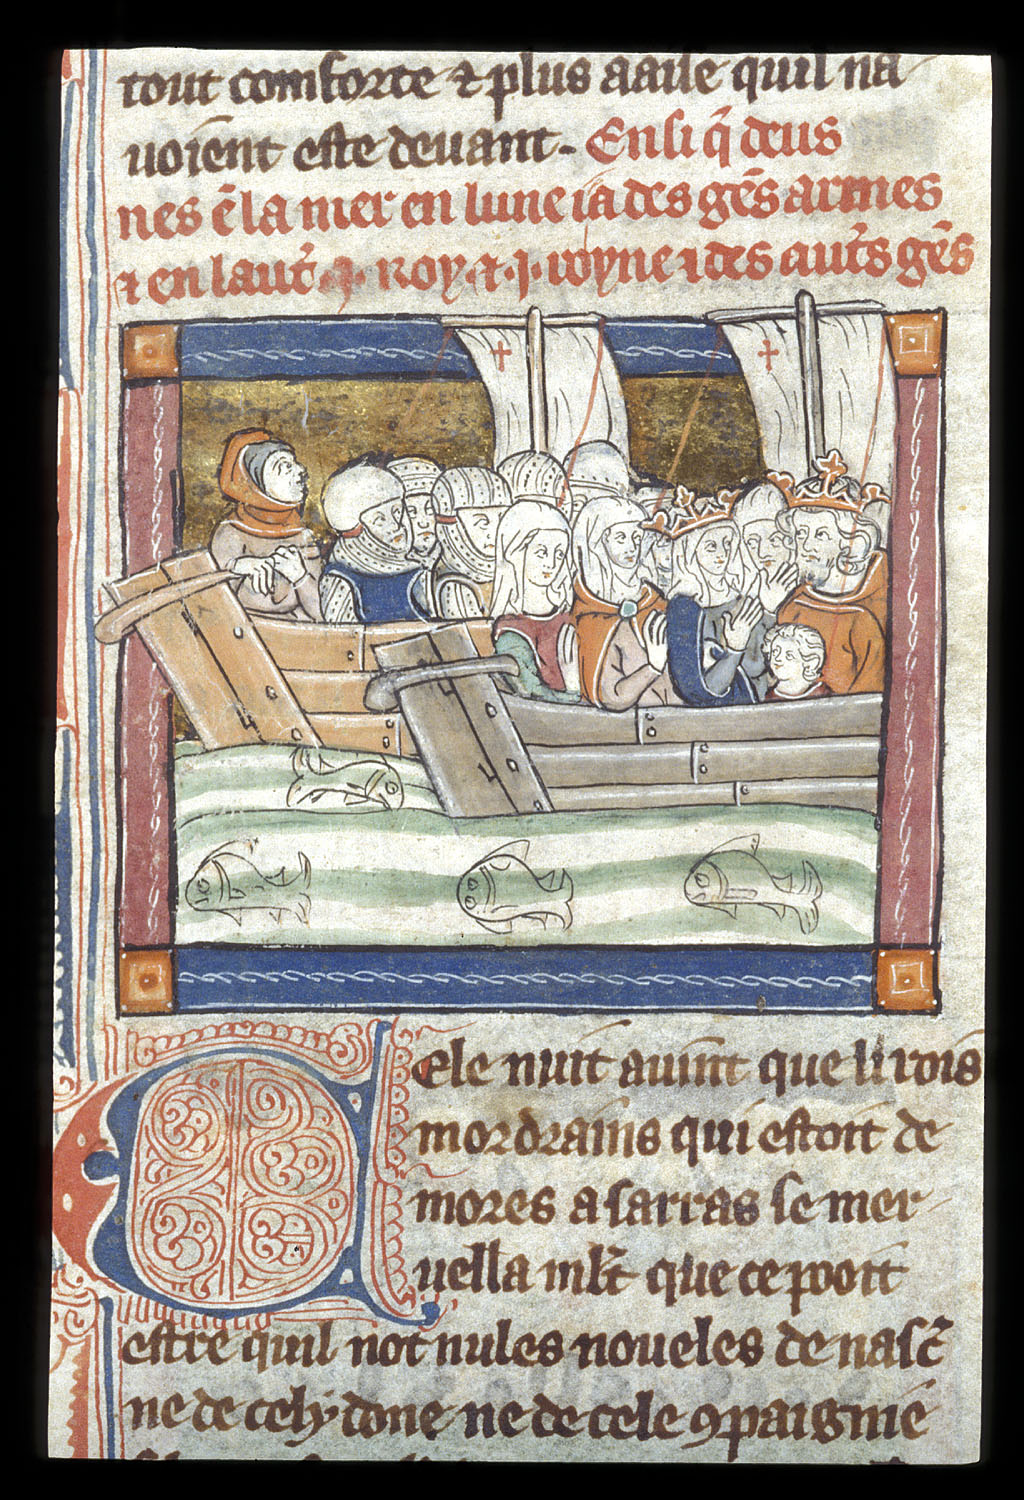 tout comforte ⁊ plus aaile quil na
uoient este deuant. Ensi q̃ deus
nes ẽ la mer en lune ia des gẽs armes
⁊ en laut̃ .j. roy ⁊ .j. royne ⁊ des aut̃s gẽs
Cele nuit auint que li rois
mordrains qui estoit de
mores a sarras se mer
uella ml̃t que ce pooit
estre quil not nules noueles de nasc̃
ne de celydone ne de cele ꝯpaignie